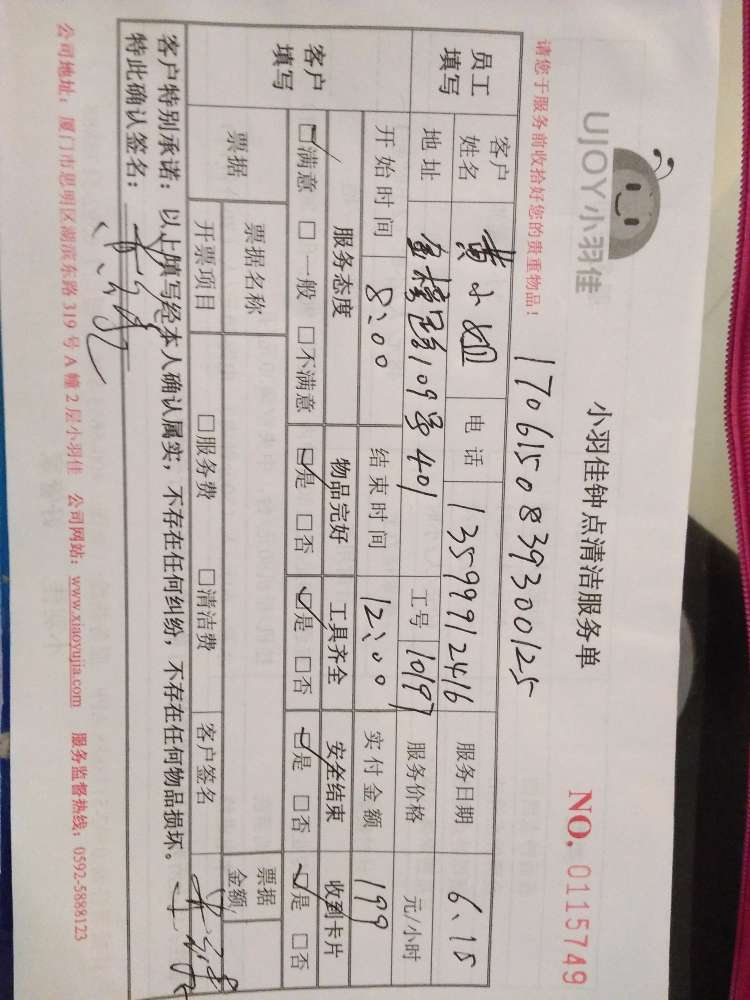 UJOY小羽佳
小羽佳钟点清洁服务单
NO. 0115749
请您于服务前收拾好您的贵重物品!
170615083930012 5
员工填写
客户姓名 黄小姐 电话 13599912416 服务日期 6.15
地址 109号401 工号 10197 服务价格 元/小时
开始时间 8:00 结束时间 12:00 实付金额 199
客户填写
服务态度 物品完好 工具齐全 安全结束 收到卡片
☑满意 □一般 □不满意 ☑是 □否 ☑是 □否 ☑是 □否 ☑是 □否
票据 票据名称 票据金额
开票项目 □服务费 □清洁费 客户签名
客户特别承诺:以上填写经本人确认属实,不存在任何纠纷,不存在任何物品损坏。
特此确认签名:
公司地址:厦门市思明区湖滨东路 319 号 A 幢 2 层小羽佳 公司网站:www.xiaoyujia.com 服务监督热线:0592-5888123